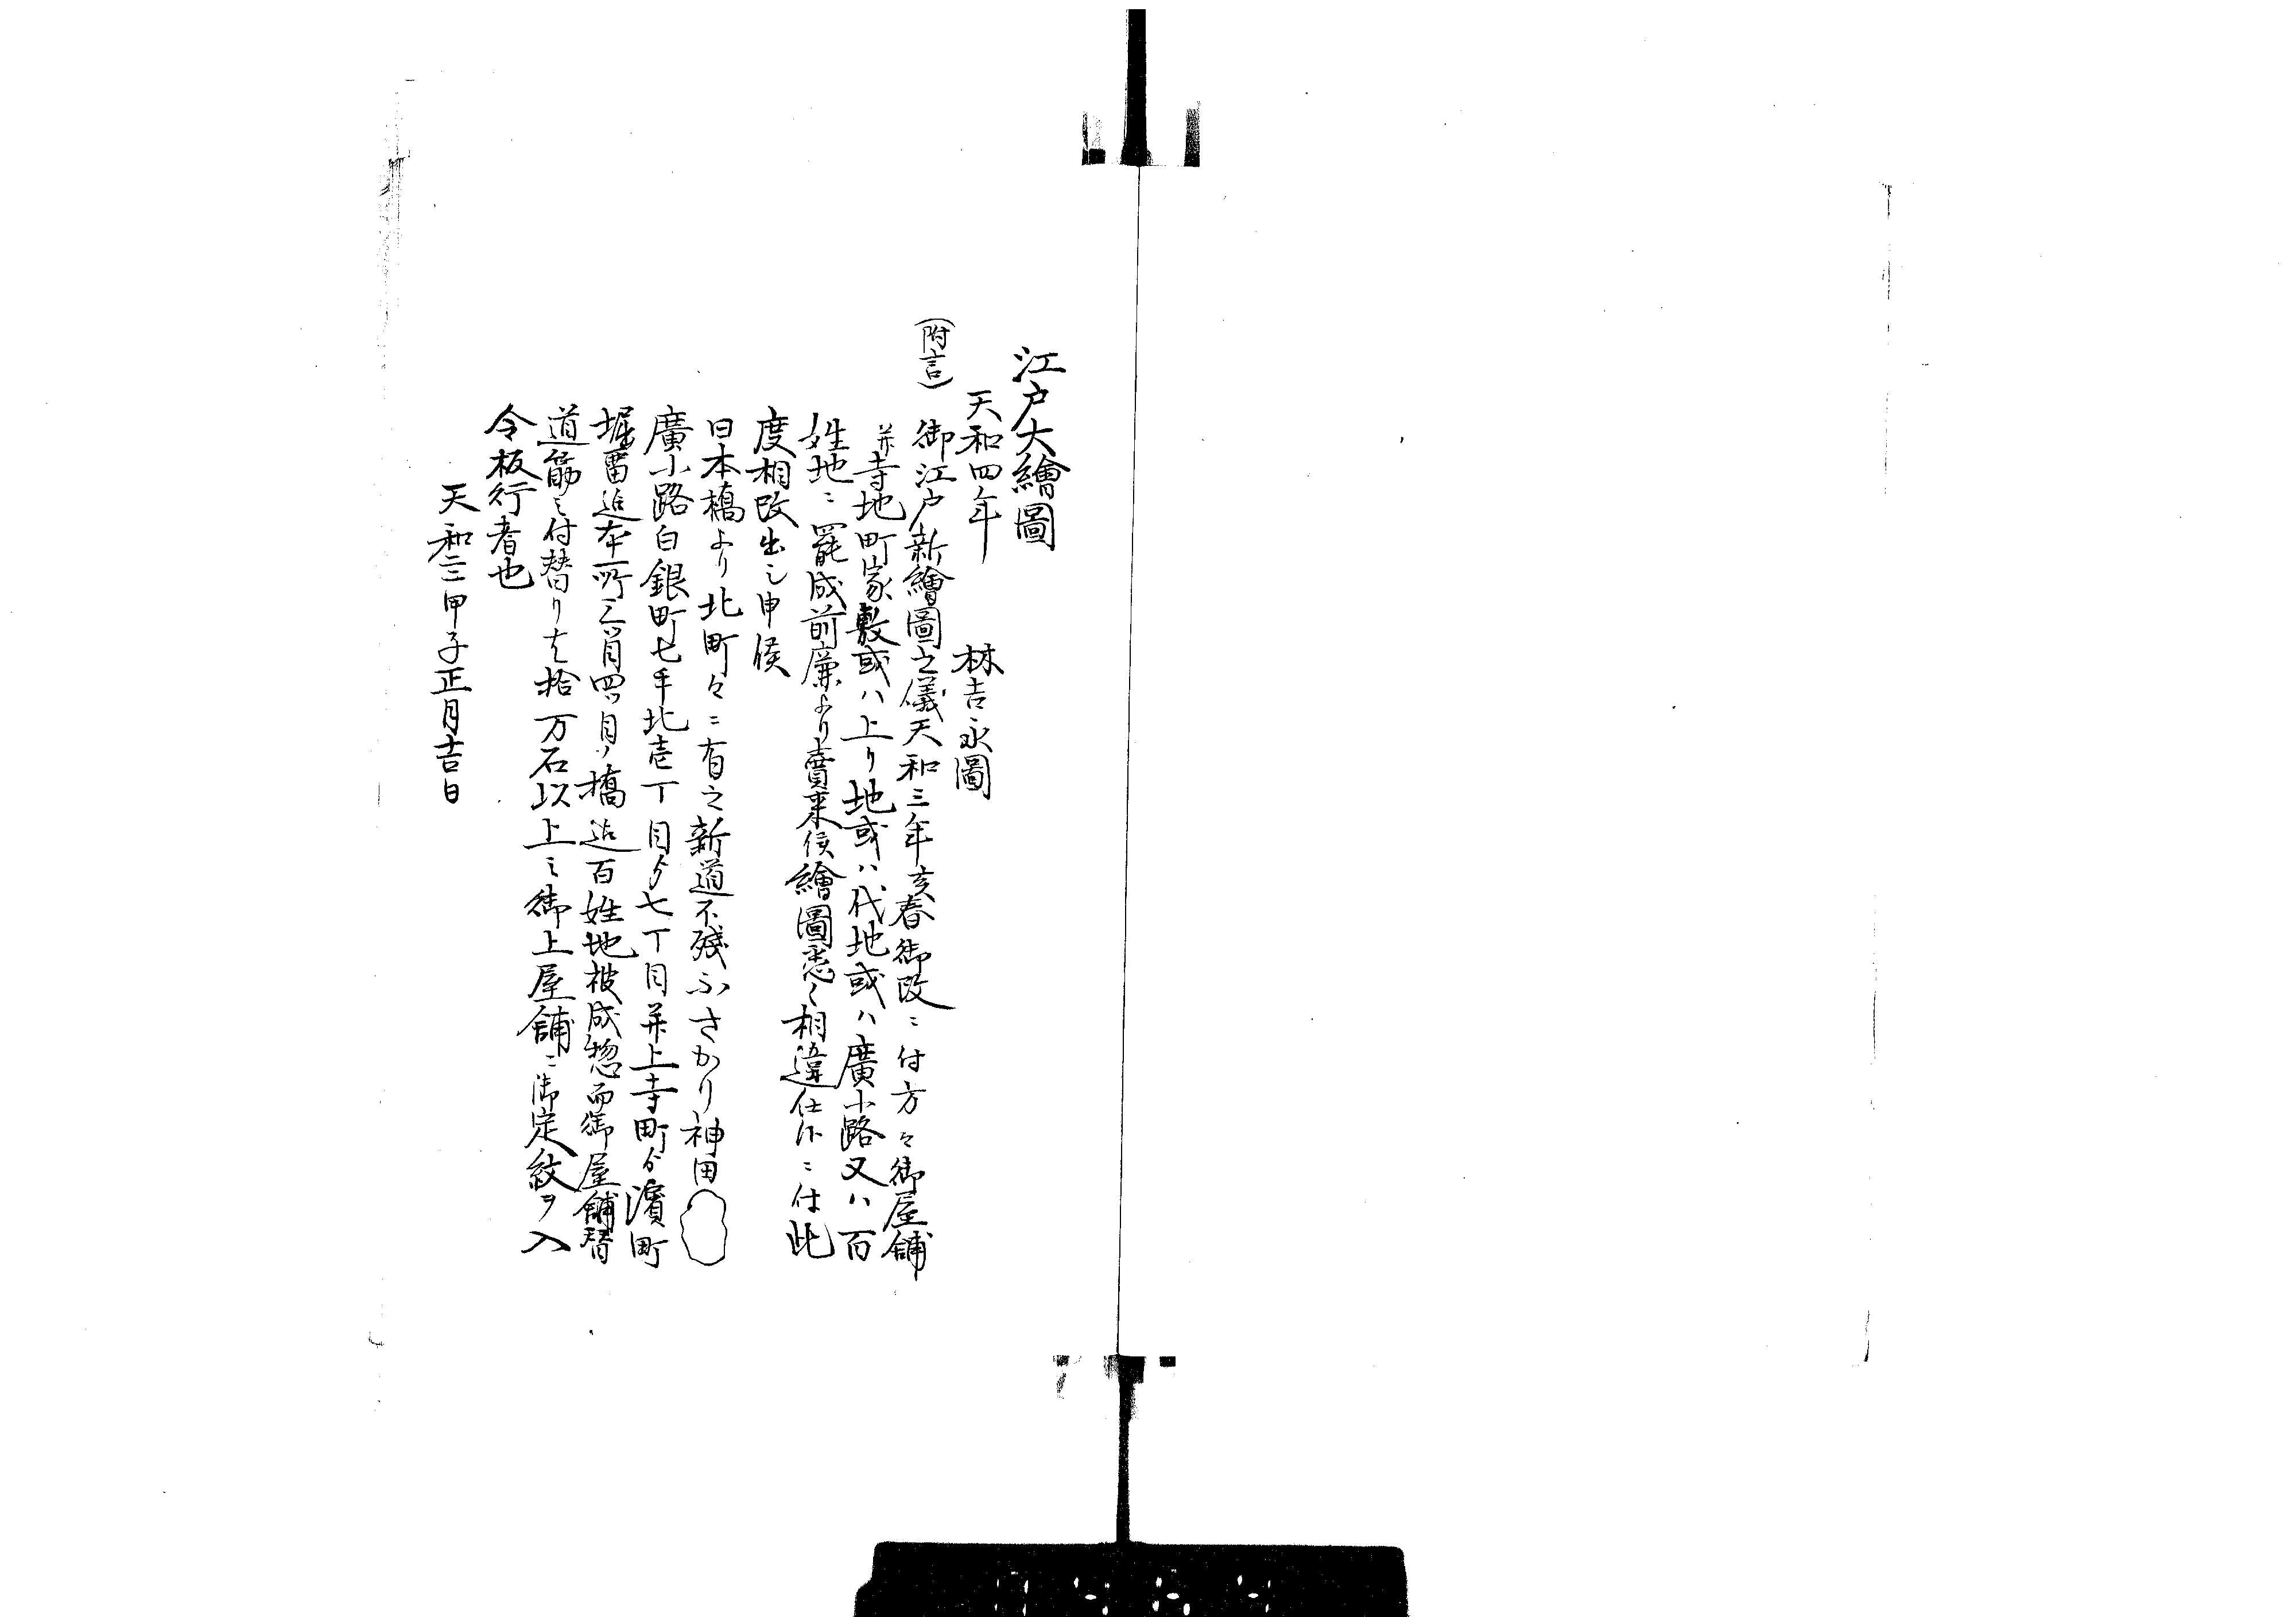 江戸大繪圖
天和四年　林吉永圖
(附言)　御江戸新繪圖之儀天和三年亥春御改ニ付方々御屋舗
并寺地町家敷或ハ上リ地或ハ代地或ハ廣小路又ハ百
姓地ニ罷成前廉より賣来候繪圖悉く相違仕候ニ付此
度相改出し申候
日本橋より北町々ニ有之新道不残ふさかり神田
廣小路白銀町七手北壱丁目ゟ七丁目并上寺町ゟ濱町
堀留迄本所三ツ目四ツ目ノ橋迄百姓地被成惣而御屋舗替
道筋ミ付替り尤拾万石以上ミ御上屋舗ニ御定紋ヲ入
令板行者也
天和三甲子正月吉日